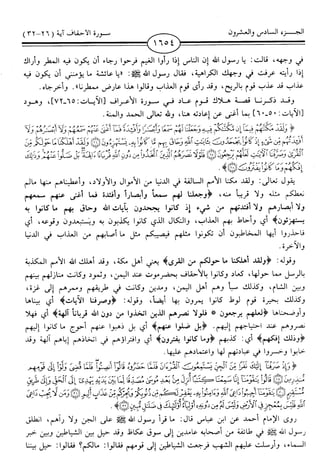 الجـزء السادس والعشرون
سورة الأحقاف آية (٢٦-٣٢)
١٦٥٤
في وجهه، قالت: يا رسول الله إن الناس إذا رأوا الغيم فرحوا رجاء أن يكون فيه المطر وأراك
إذا رأيته عرفت في وجهك الكراهية، فقال رسول الله ﷺ: «يا عائشة ما يؤمنني أن يكون فيه
عذاب قد عذب قوم بالريح، وقد رأى قوم العذاب وقالوا هذا عارض ممطرنا». وأخرجاه.
وقد ذكرنا قصة هلاك قوم عاد في سورة الأعراف [الآيات: ٦٥-٧٢]، وهود
[الآيات: ٥٠-٦٠] بما أغنى عن إعادته هنا، ولله تعالى الحمد والمنة.
﴿ وَلَقَدْ مَكَّنَّاهُمْ فِيمَا إِن مَّكَّنَّاكُمْ فِيهِ وَجَعَلْنَا لَهُمْ سَمْعًا وَأَبْصَارًا وَأَفْئِدَةً فَمَا أَغْنَى عَنْهُمْ سَمْعُهُمْ وَلَا أَبْصَارُهُمْ وَلَا
أَفْئِدَتُهُم مِّن شَيْءٍ إِذْ كَانُوا يَجْحَدُونَ بِآيَاتِ اللَّهِ وَحَاقَ بِهِم مَّا كَانُوا بِهِ يَسْتَهْزِئُونَ ۝ وَلَقَدْ أَهْلَكْنَا مَا حَوْلَكُم مِّنَ
الْقُرَى وَصَرَّفْنَا الْآيَاتِ لَعَلَّهُمْ يَرْجِعُونَ ۝ فَلَوْلَا نَصَرَهُمُ الَّذِينَ اتَّخَذُوا مِن دُونِ اللَّهِ قُرْبَانًا آلِهَةً بَلْ ضَلُّوا عَنْهُمْ وَذَلِكَ
إِفْكُهُمْ وَمَا كَانُوا يَفْتَرُونَ ۝ ﴾
يقول تعالى: ولقد مكنا الأمم السالفة في الدنيا من الأموال والأولاد، وأعطيناهم منها مالم
نعطكم مثله ولا قريباً منه، ﴿وجعلنا لهم سمعاً وأبصاراً وأفئدة فما أغنى عنهم سمعهم
ولا أبصارهم ولا أفئدتهم من شيء إذ كانوا يجحدون بآيات الله وحاق بهم ما كانوا به
يستهزئون﴾ أي وأحاط بهم العذاب، والنكال الذي كانوا يكذبون به ويستبعدون وقوعه، أي
فاحذروا أيها المخاطبون أن تكونوا مثلهم فيصيبكم مثل ما أصابهم من العذاب في الدنيا
والآخرة.
وقوله: ﴿ولقد أهلكنا ما حولكم من القرى﴾ يعني أهل مكة، وقد أهلك الله الأمم المكذبة
بالرسل مما حولها، كعاد وكانوا بالأحقاف بحضرموت عند اليمن، وثمود وكانت منازلهم بينهم
وبين الشام، وكذلك سبأ وهم أهل اليمن، ومدين وكانت في طريقهم وممرهم إلى غزة،
وكذلك بحيرة قوم لوط كانوا يمرون بها أيضاً، وقوله: ﴿وصرفنا الآيات﴾ أي بيناها
وأوضحناها ﴿لعلهم يرجعون * فلولا نصرهم الذين اتخذوا من دون الله قرباناً آلهة﴾ أي فهلا
نصروهم عند احتياجهم إليهم. ﴿بل ضلوا عنهم﴾ أي بل ذهبوا عنهم أحوج ما كانوا إليهم
﴿وذلك إفكهم﴾ أي: كذبهم ﴿وما كانوا يفترون﴾ أي وافتراؤهم في اتخاذهم إياهم آلهة وقد
خابوا وخسروا في عبادتهم لها واعتمادهم عليها.
﴿ وَإِذْ صَرَفْنَا إِلَيْكَ نَفَرًا مِّنَ الْجِنِّ يَسْتَمِعُونَ الْقُرْآنَ فَلَمَّا حَضَرُوهُ قَالُوا أَنصِتُوا فَلَمَّا قُضِيَ وَلَّوْا إِلَى قَوْمِهِم
مُّنذِرِينَ ۝ قَالُوا يَا قَوْمَنَا إِنَّا سَمِعْنَا كِتَابًا أُنزِلَ مِن بَعْدِ مُوسَى مُصَدِّقًا لِّمَا بَيْنَ يَدَيْهِ يَهْدِي إِلَى الْحَقِّ وَإِلَى
طَرِيقٍ مُّسْتَقِيمٍ ۝ يَا قَوْمَنَا أَجِيبُوا دَاعِيَ اللَّهِ وَآمِنُوا بِهِ يَغْفِرْ لَكُم مِّن ذُنُوبِكُمْ وَيُجِرْكُم مِّنْ عَذَابٍ أَلِيمٍ ۝ وَمَن لَّا يُجِبْ دَاعِيَ
اللَّهِ فَلَيْسَ بِمُعْجِزٍ فِي الْأَرْضِ وَلَيْسَ لَهُ مِن دُونِهِ أَوْلِيَاءُ أُولَئِكَ فِي ضَلَالٍ مُّبِينٍ ۝ ﴾
روى الإمام أحمد عن ابن عباس قال: ما قرأ رسول الله ﷺ على الجن ولا رآهم، انطلق
رسول الله ﷺ في طائفة من أصحابه عامدين إلى سوق عكاظ وقد حيل بين الشياطين وبين خبر
السماء، وأرسلت عليهم الشهب فرجعت الشياطين إلى قومهم فقالوا: مالكم؟ فقالوا: حيل بيننا